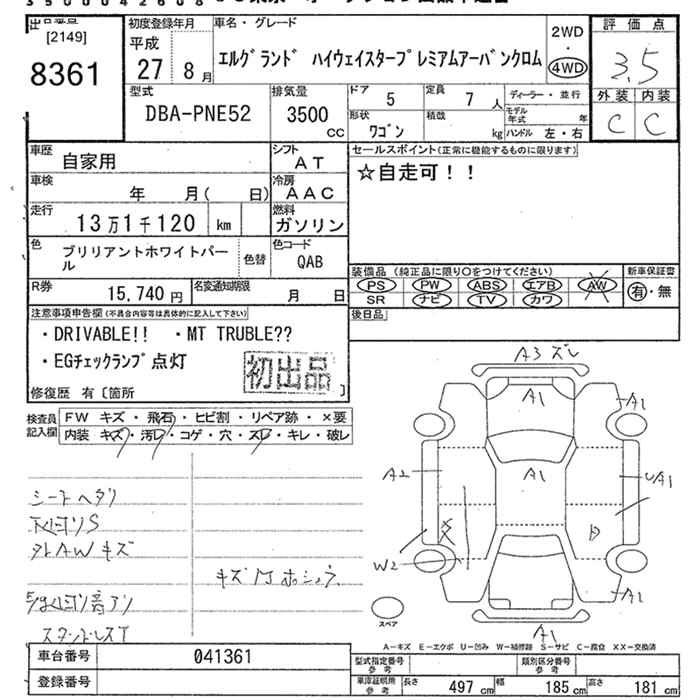 [2149]
8361
初度登録年月
平成
27年 8月
車名・グレード
エルグランド ハイウェイスタープレミアムアーバンクロム
2WD
・
4WD
評価点
3.5
外装 内装
C C
型式
DBA-PNE52
排気量
3500
CC
ドア 5
定員 7人
形状
ワゴン
積載
kg
ディーラー・並行
モデル年式 年
ハンドル 左・右
車歴
自家用
シフト
AT
車検
年 月( 日)
冷房
AAC
走行
13万1千120 km
燃料
ガソリン
色
ブリリアントホワイトパール
色替
色コード
QAB
R券
15,740円
名変通知期限
月 日
セールスポイント(正常に機能するものに限ります)
☆自走可!!
装備品 (純正品に限り○をつけてください)
PS PW ABS エアB AW
SR ナビ TV カワ
新車保証書
有・無
後日品
注意事項申告欄(不具合内容等は具体的に記入して下さい)
・DRIVABLE!! ・MT TRUBLE??
・EGチェックランプ点灯
初出品
修復歴 有〔箇所 〕
検査員記入欄
FW キズ・飛石・ヒビ割・リペア跡・×要
内装 キズ・汚レ・コゲ・穴・スレ・キレ・破レ
シートヘタリ
外AWキズ
A3 ズレ
A1
A1
A1
A1
A2
W2
A1
A1
スペア
A-キズ E-エクボ U-凹み W-補修跡 S-サビ C-腐食 XX-交換済
車台番号 041361
登録番号
型式指定番号 参考
類別区分番号 参考
車庫証明用 参考
長さ 497cm 幅 185cm 高さ 181cm